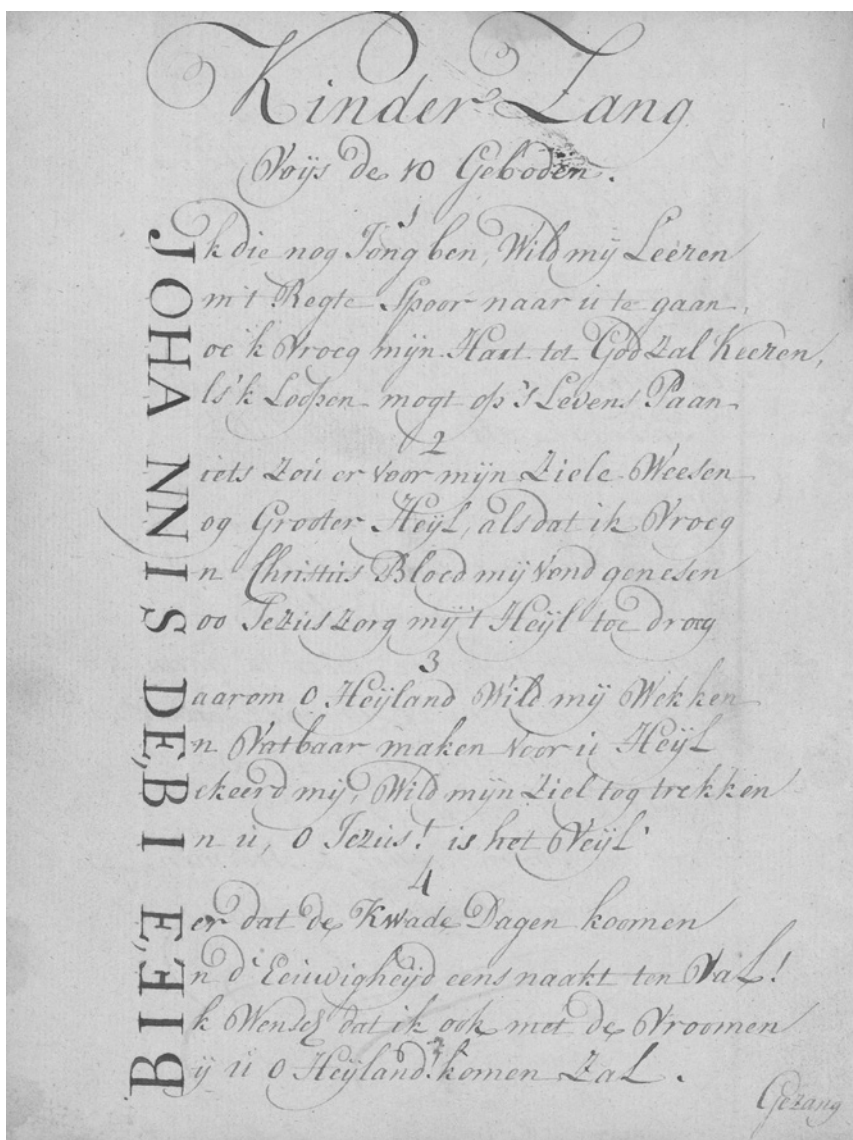 Kinder Zang
Voijs de 10 Geboden.
1
Jk die nog Jong ben, Wild mÿ Leeren
Om 't Regte Spoor naar ú te gaan,
Hoe 'k Vroeg mijn Hart tot God Zal Keeren,
Als 'k Loopen mogt op 's Levens Paan
2
Niets Zoú er Voor mijn Ziele Weesen
Nog Grooter Heÿl, als dat ik Vroeg
In Christús Bloed mij Vond genesen
Soo Jezús Zorg mij 't Heÿl toe droeg
3
Daarom O Heÿland Wild mÿ Wekken
En Vatbaar maken Voor ú Heÿl
Bekeerd mÿ, Wild mijn Ziel tog trekken
In ú, O Jezús! is het Veÿl
4
Eer dat de Kwade Dagen koomen
En d' Eeúwigheÿd eens naakt ten Val!
Ik Wensch dat ik ook met de Vroomen
Bÿ ú O Heÿland! komen Zal.
Gezang